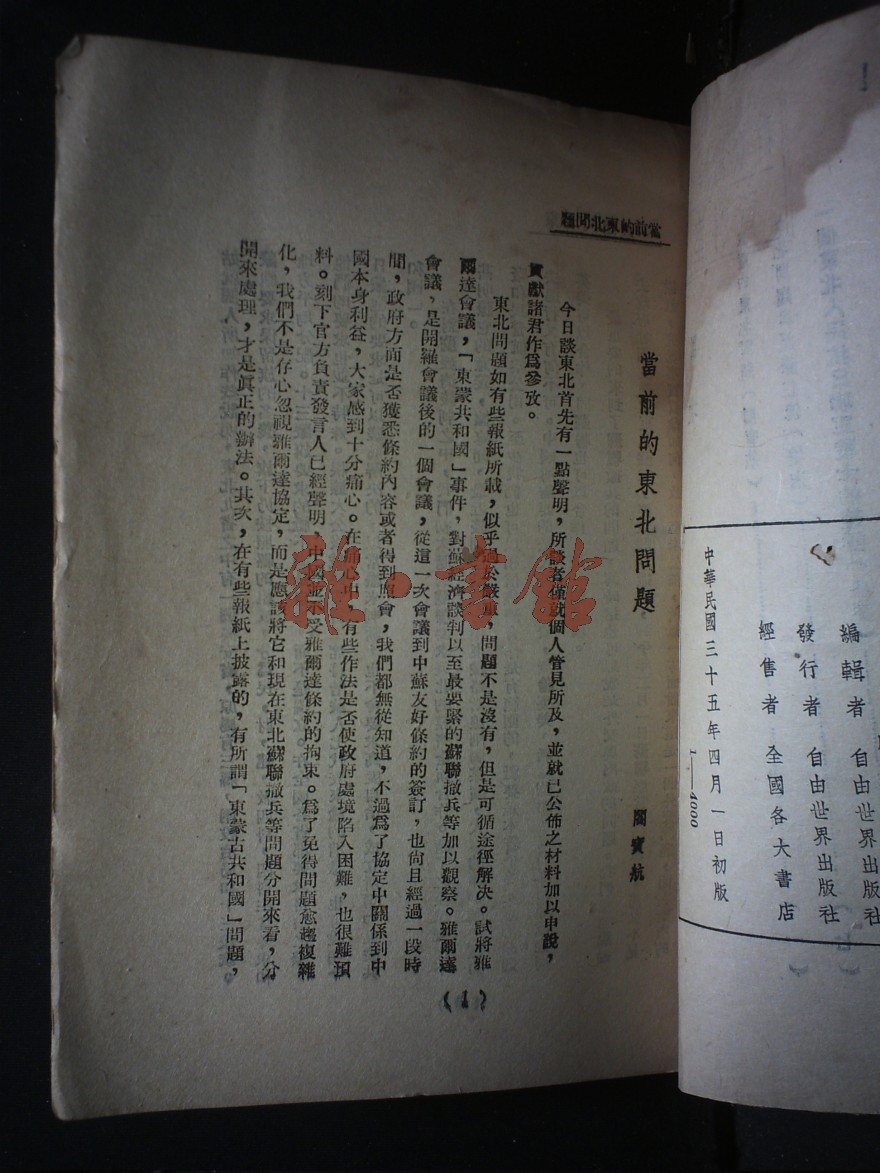 編輯者 自由世界出版社
發行者 自由世界出版社
經售者 全國各大書店
中華民國三十五年四月一日初版
1—4000
當前的東北問題
當前的東北問題
閻寶航
今日談東北首先有一點聲明，所談者僅就個人管見所及，並就已公佈之材料加以申說，
貢獻諸君作爲參攷。
東北問題如有些報紙所載，似乎過於嚴重，問題不是沒有，但是可循途徑解决。試將雅
爾達會議，「東蒙共和國」事件，對蘇經濟談判以至最要緊的蘇聯撤兵等加以觀察。雅爾達
會議，是開羅會議後的一個會議，從這一次會議到中蘇友好條約的簽訂，也尙且經過一段時
間，政府方面是否獲悉條約內容或者得到照會，我們都無從知道，不過爲了協定中關係到中
國本身利益，大家感到十分痛心。在痛心中，有些作法是否使政府處境陷入困難，也很難預
料。刻下官方負責發言人已經聲明，中國並不受雅爾達條約的拘束。爲了免得問題愈趨複雜
化，我們不是存心忽視雅爾達協定，而是應該將它和現在東北蘇聯撤兵等問題分開來看，分
開來處理，才是眞正的辦法。其次，在有些報紙上披露的，有所謂「東蒙古共和國」問題，
(1)
雜·書館